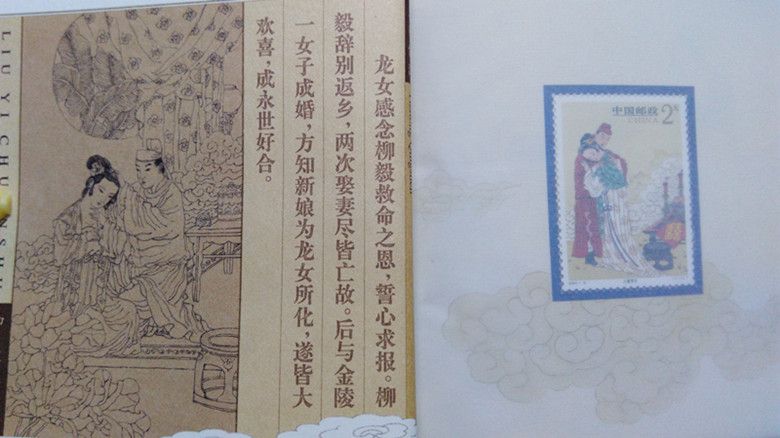 龙女感念柳毅救命之恩，誓心求报。柳
毅辞别返乡，两次娶妻尽皆亡故。后与金陵
一女子成婚，方知新娘为龙女所化，遂皆大
欢喜，成永世好合。
LIU YI CHUANSHU
中国邮政
CHINA
2元